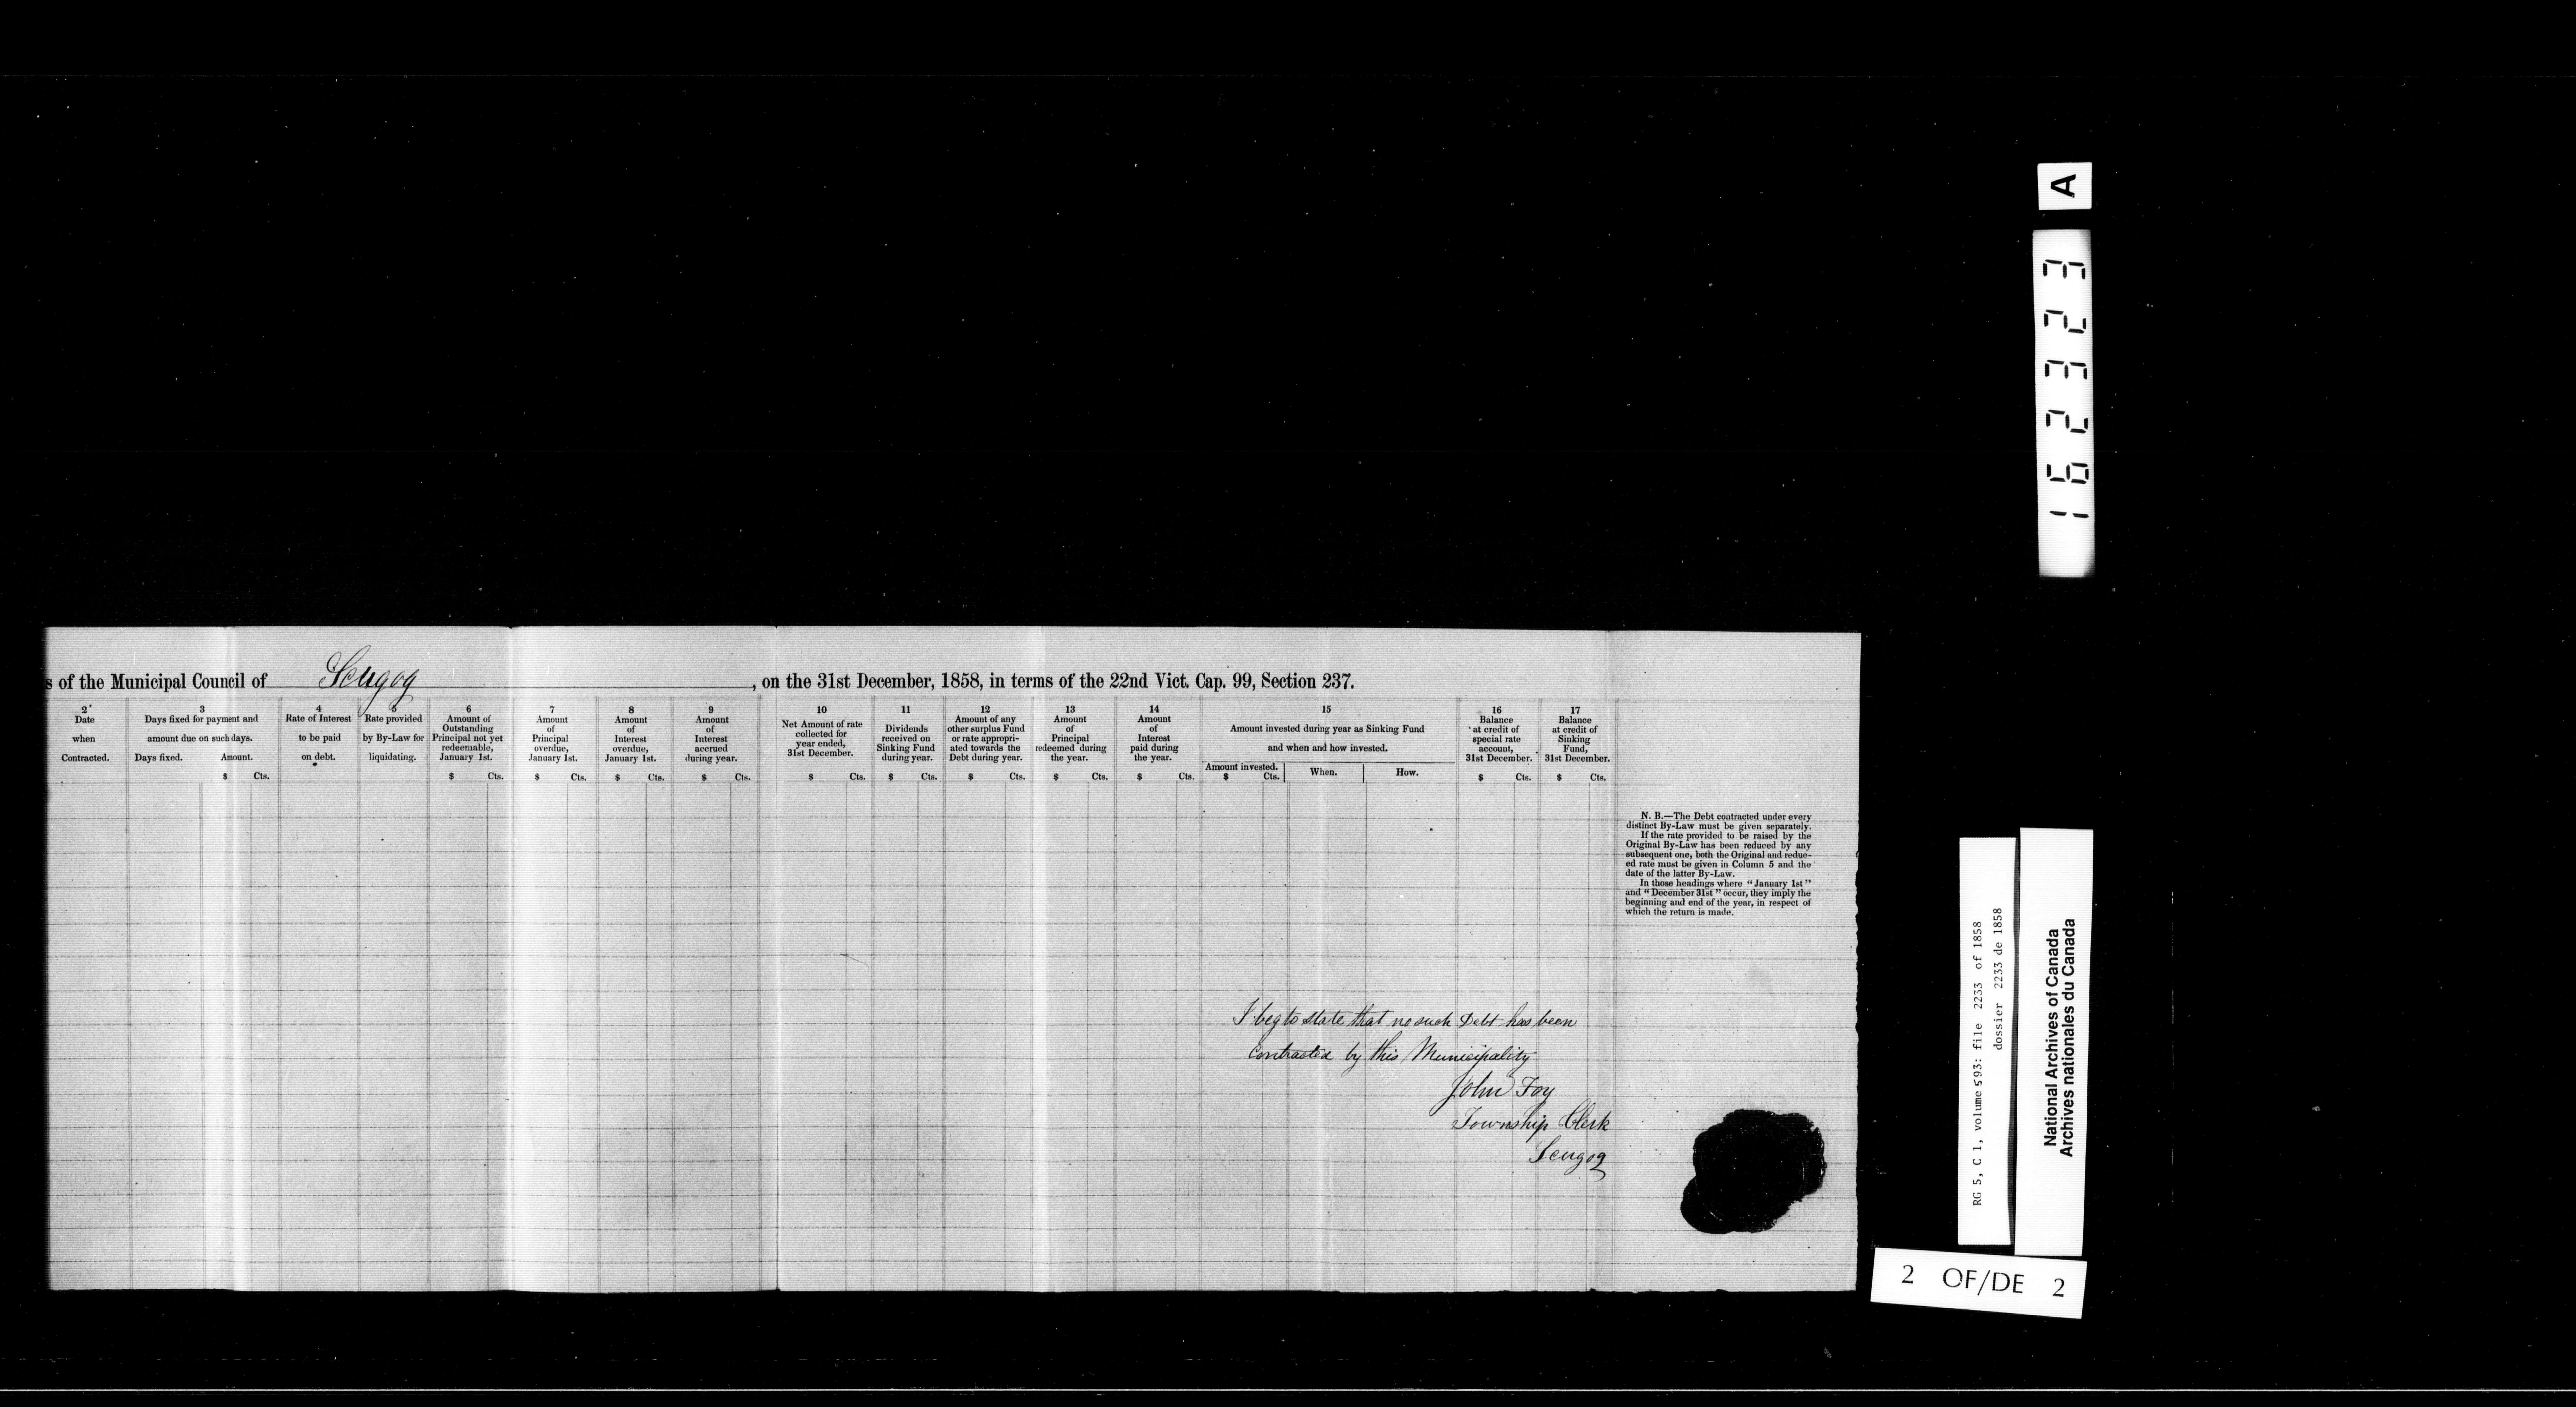 s of the Municipal Council of Scugog, on the 31st December, 1858, in terms of the 22nd Vict. Cap. 99, Section 237.
2
Date
when
Contracted.
3
Days fixed for payment and
amount due on such days.
Days fixed. Amount.
$ Cts.
4
Rate of Interest
to be paid
on debt.
5
Rate provided
by By-Law for
liquidating.
6
Amount of
Outstanding
Principal not yet
redeemable,
January 1st.
$ Cts.
7
Amount
of
Principal
overdue,
January 1st.
$ Cts.
8
Amount
of
Interest
overdue,
January 1st.
$ Cts.
9
Amount
of
Interest
accrued
during year.
$ Cts.
10
Net Amount of rate
collected for
year ended,
31st December.
$ Cts.
11
Dividends
received on
Sinking Fund
during year.
$ Cts.
12
Amount of any
other surplus Fund
or rate appropri-
ated towards the
Debt during year.
$ Cts.
13
Amount
of
Principal
redeemed during
the year.
$ Cts.
14
Amount
of
Interest
paid during
the year.
$ Cts.
15
Amount invested during year as Sinking Fund
and when and how invested.
Amount invested. When. How.
$ Cts.
16
Balance
at credit of
special rate
account,
31st December.
$ Cts.
17
Balance
at credit of
Sinking
Fund,
31st December.
$ Cts.
N. B.—The Debt contracted under every
distinct By-Law must be given separately.
If the rate provided to be raised by the
Original By-Law has been reduced by any
subsequent one, both the Original and reduc-
ed rate must be given in Column 5 and the
date of the latter By-Law.
In those headings where "January 1st"
and "December 31st" occur, they imply the
beginning and end of the year, in respect of
which the return is made.
I beg to state that no such Debt has been
contracted by this Municipality
John Foy
Township Clerk
Scugog
162323 A
RG 5, C 1, volume 593: file 2233 of 1858
dossier 2233 de 1858
National Archives of Canada
Archives nationales du Canada
2 OF/DE 2